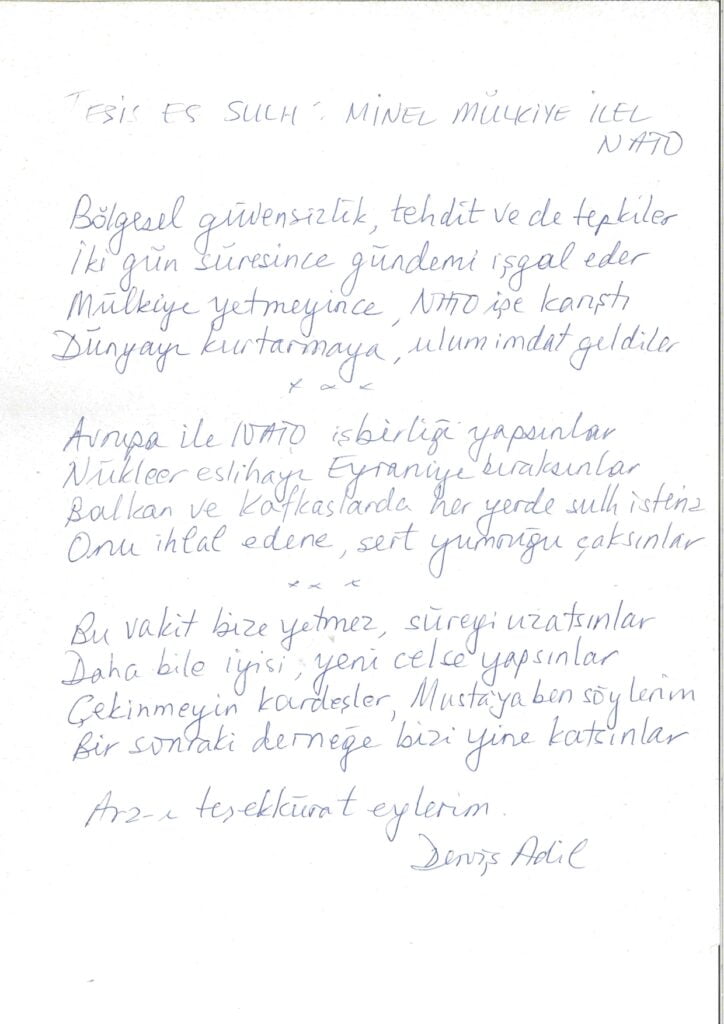 TESİS ES SULH: MİNEL MÜLKİYE İLEL
NATO
Bölgesel güvensizlik, tehdit ve de tepkiler
İki gün süresince gündemi işgal eder
Mülkiye yetmeyince, NATO işe karıştı
Dünyayı kurtarmaya, ulum imdat geldiler
x x x
Avrupa ile NATO işbirliği yapsınlar
Nükleer eslihayı Eyraniye bıraksınlar
Balkan ve Kafkaslarda her yerde sulh isteriz
Onu ihlal edene, sert yumruğu çaksınlar
x x x
Bu vakit bize yetmez, süreyi uzatsınlar
Daha bile iyisi, yeni celse yapsınlar
Çekinmeyin kardeşler, ben söylerim
Bir sonraki derneğe bizi yine katsınlar
Arz-ı teşekkürat eylerim.
Derviş Adil